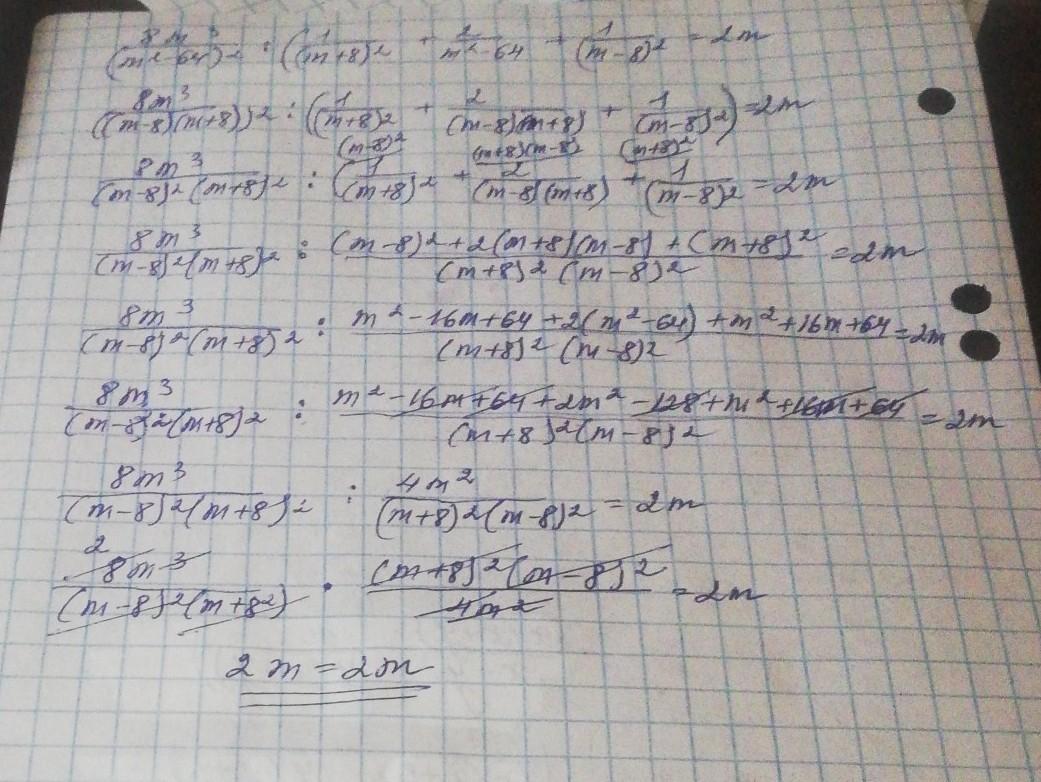 8m³/(m²-64)² : (1/(m+8)² + 2/m²-64 + 1/(m-8)² = 2m
8m³/((m-8)(m+8))² : (1/(m+8)² + 2/(m-8)(m+8) + 1/(m-8)²) = 2m
(m-8)² (m+8)(m-8) (m+8)²
8m³/(m-8)²(m+8)² : (1/(m+8)² + 2/(m-8)(m+8) + 1/(m-8)² = 2m
8m³/(m-8)²(m+8)² : (m-8)²+2(m+8)(m-8)+(m+8)²/(m+8)²(m-8)² = 2m
8m³/(m-8)²(m+8)² : m²-16m+64+2(m²-64)+m²+16m+64/(m+8)²(m-8)² = 2m
8m³/(m-8)²(m+8)² : m²-16m+64+2m²-128+m²+16m+64/(m+8)²(m-8)² = 2m
8m³/(m-8)²(m+8)² : 4m²/(m+8)²(m-8)² = 2m
2
8m³/(m-8)²(m+8²) · (m+8)²(m-8)²/4m² = 2m
2m = 2m